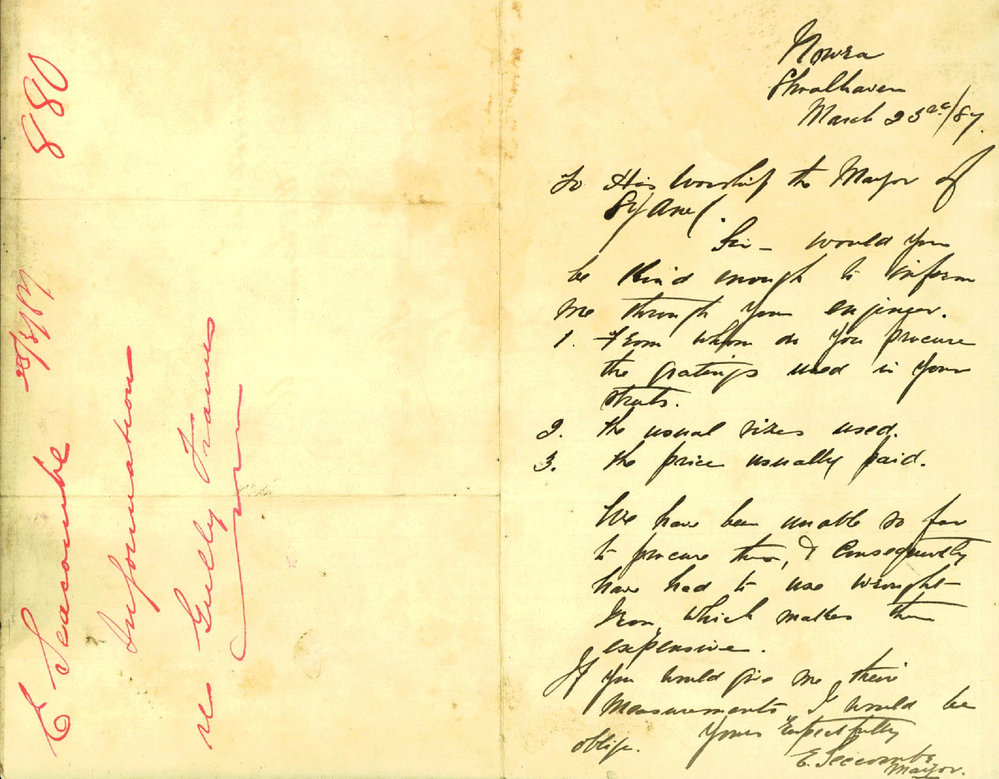 880
E Seacombe 25/3/87
Information
re Gully Frames
Nowra
Shoalhaven
March 23rd/87.
To His Worship the Mayor of
Sydney.
Sir – Would you
be kind enough to inform
me through your enginer.
1. From whom do you procure
the gratings used in your
streets.
2. the usual sizes used.
3. the price usually paid.
We have been unable so far
to procure them, & Consequently
have had to use wrought
Iron, which makes them
expensive.
If you would give me their
Measurements I would be
oblige. Yours Respectfully
E. Seccombe
Mayor.